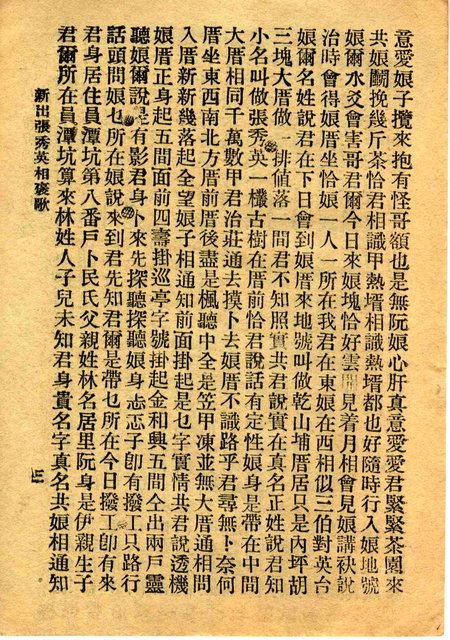 意愛娘子攬來抱有怪哥額也是無阮娘心肝真意愛愛君緊緊茶園來
共娘鬮挽幾斤茶恰君相識甲熱壻相識熱壻都也好隨時行入娘地號
娘爾水爻會害哥君爾今日來娘塊恰好雲開見着月相會見娘講袂說
治時會得娘厝坐恰娘一人一所在我君在東娘在西相似三伯對英台
娘爾名姓說君在下日會到娘厝來地號叫做乾山埔厝居只是內坪胡
三塊大厝做一排値落一間君不知照實共君說實在真名正姓說君知
小名叫做張秀英一欉古樹在厝前恰君說話有定性娘身是帶在中間
大厝相同千萬數甲君治莊通去摸卜去娘厝不識路乎君尋無卜奈何
厝坐東西南北方厝前厝後盡是楓聽中全是笠甲凍並無大厝通相問
入厝新新幾落起全望娘子相通知前面掛起是乜字實情共君說透機
娘厝正身起五間面前四壽掛巡亭字號掛起金和興五間仝出兩戶靈
聽娘爾說是有影君身卜來先探聽探聽娘身忐忑子卽有撥工只路行
話頭問娘乜所在娘說來到君先知君爾是帶乜所在今日撥工卽有來
君身居住員潭坑第八番戶卜民氏父親姓林名居里阮身是伊親生子
君爾所在員潭坑算來林姓人子兒未知君身貴名字真名共娘相通知
新出張秀英相褒歌